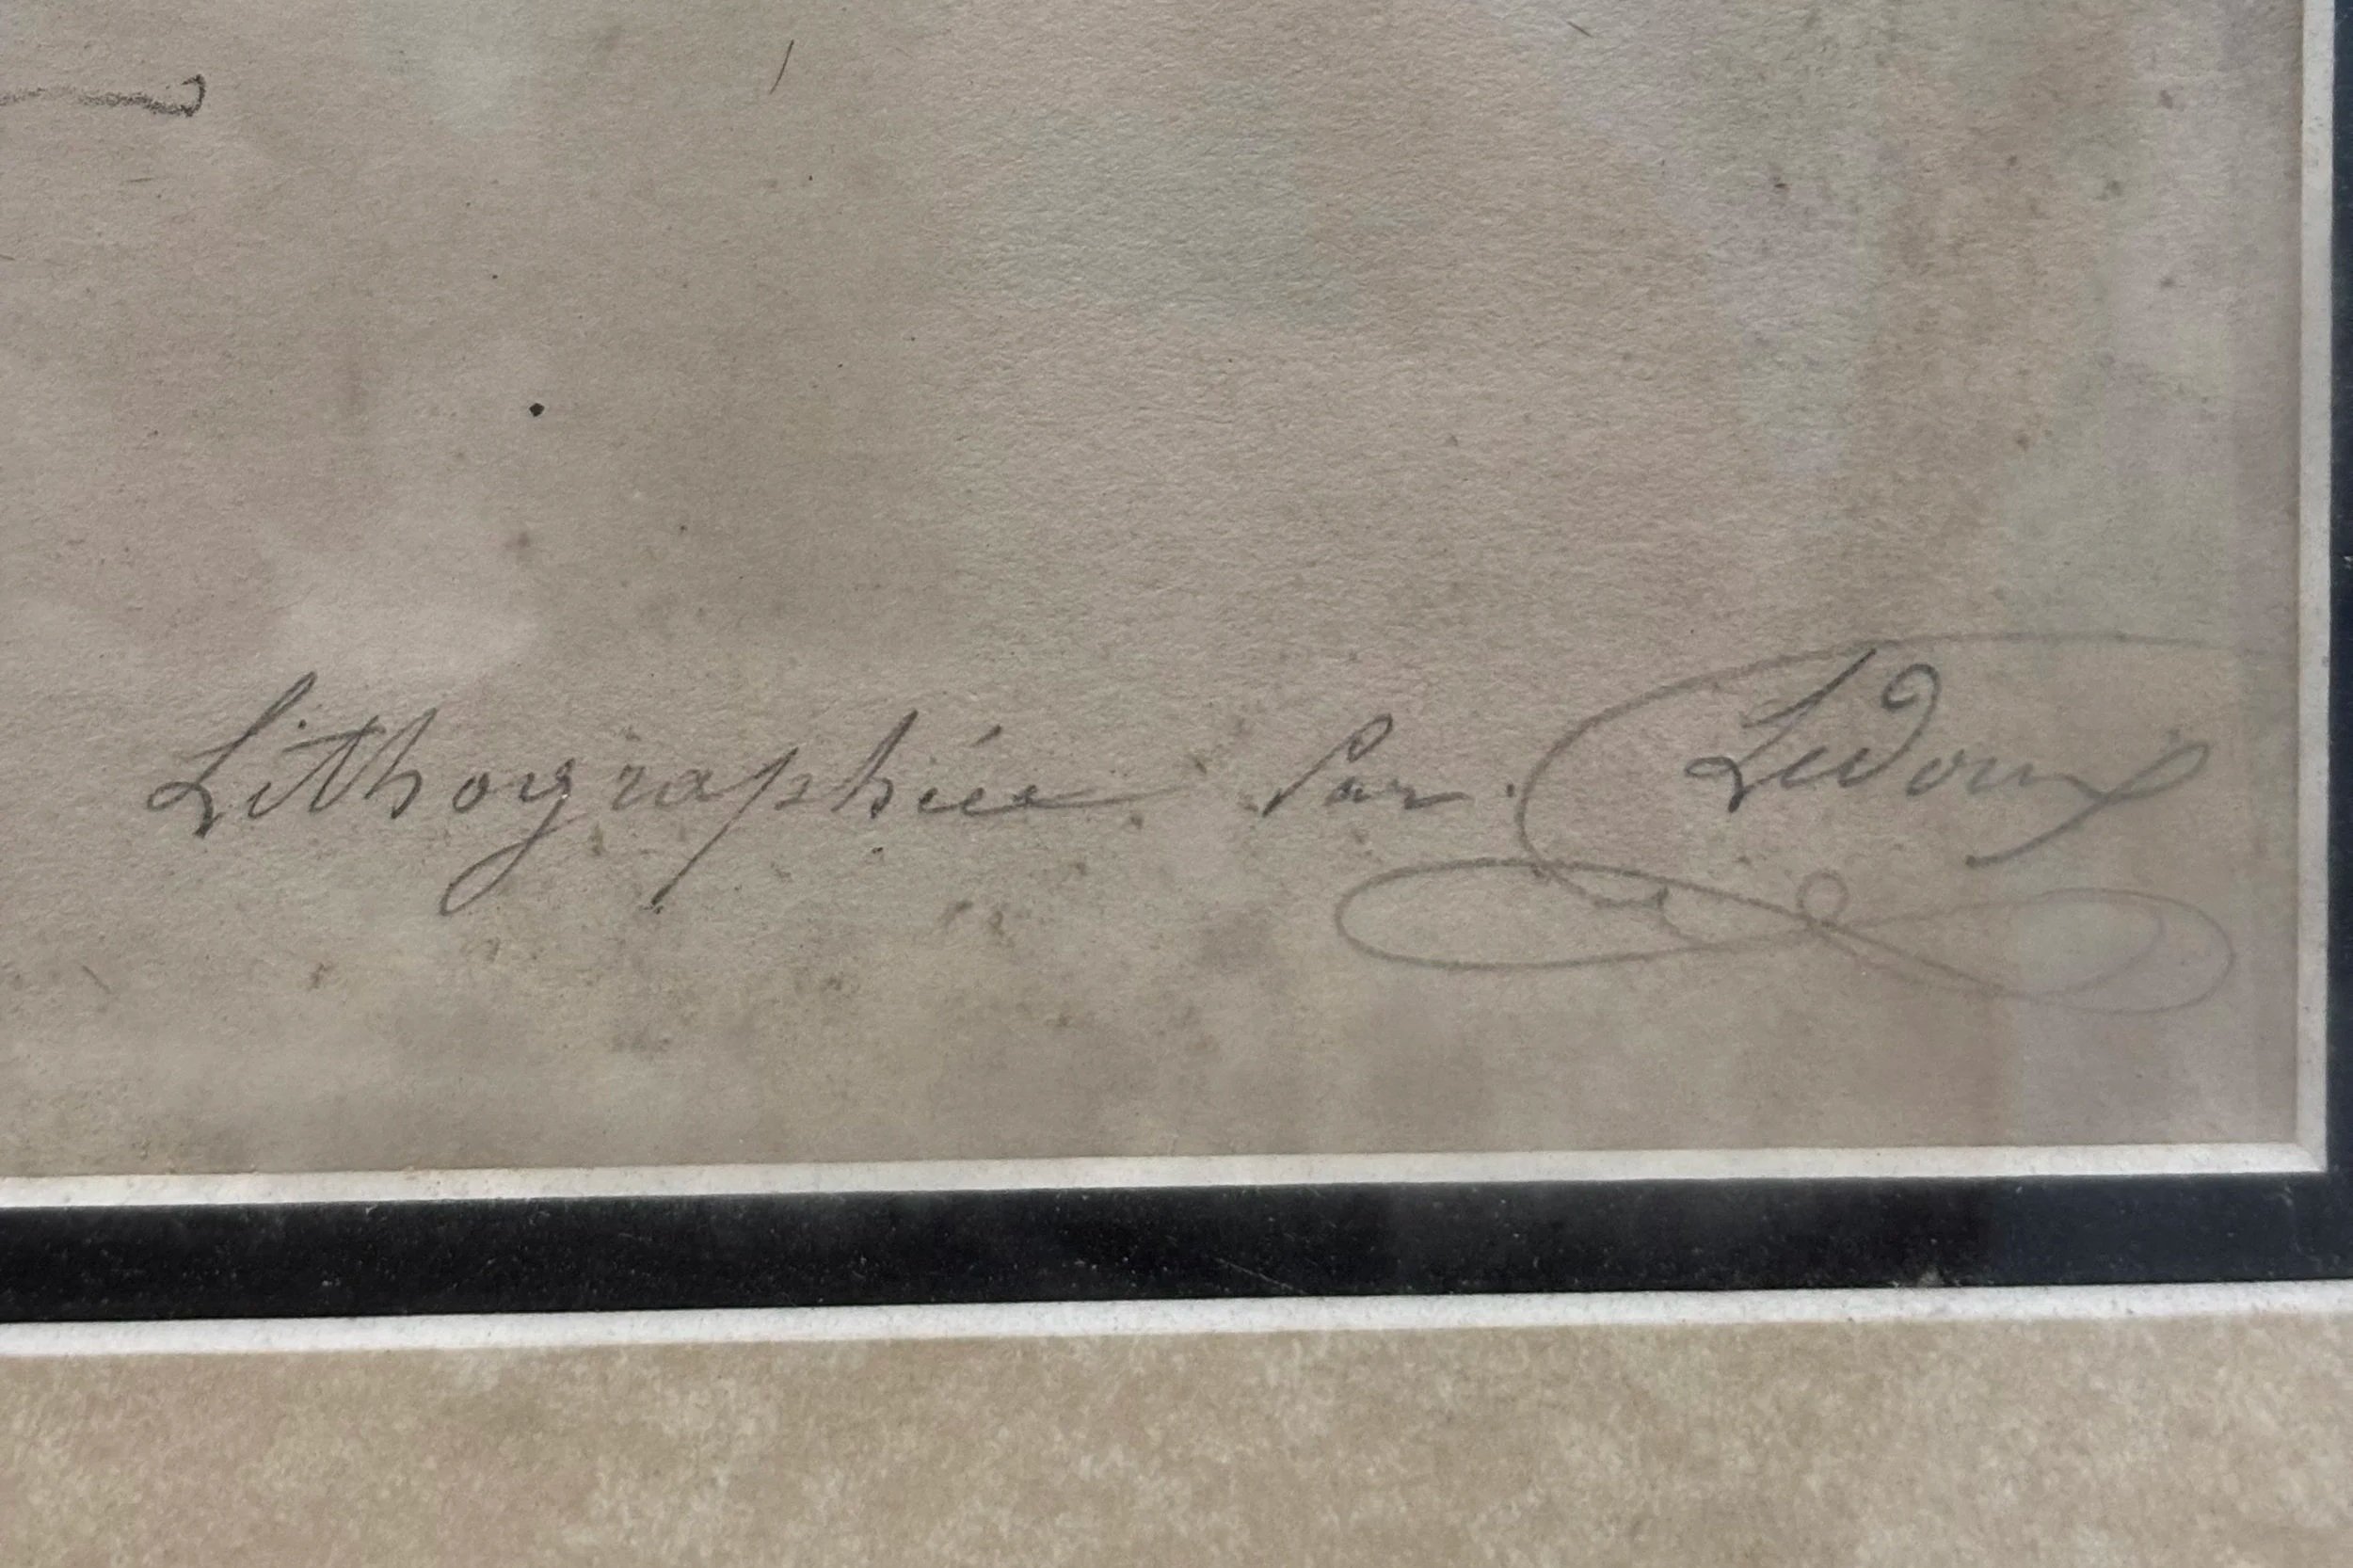 Lithographiée Par. Ledoux